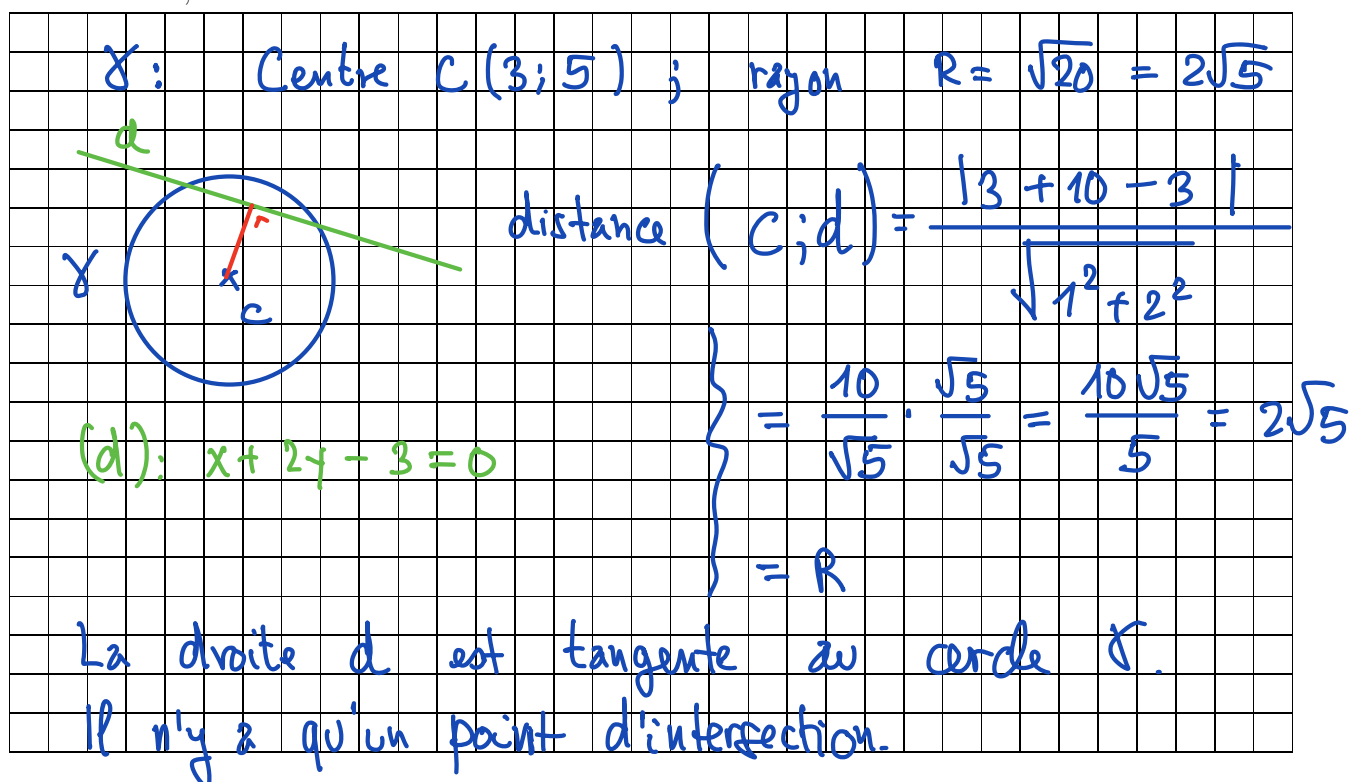 γ: Centre C (3 ; 5) ; rayon R = √20 = 2√5
d
γ
C
distance (C ; d) = |3 + 10 - 3| / √(1² + 2²)
= 10/√5 · √5/√5 = 10√5/5 = 2√5
(d): x + 2y - 3 = 0
= R
La droite d est tangente au cercle γ.
Il n'y a qu'un point d'intersection.